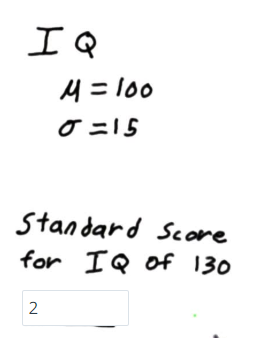 IQ
μ = 100
σ = 15
Standard Score
for IQ of 130
2